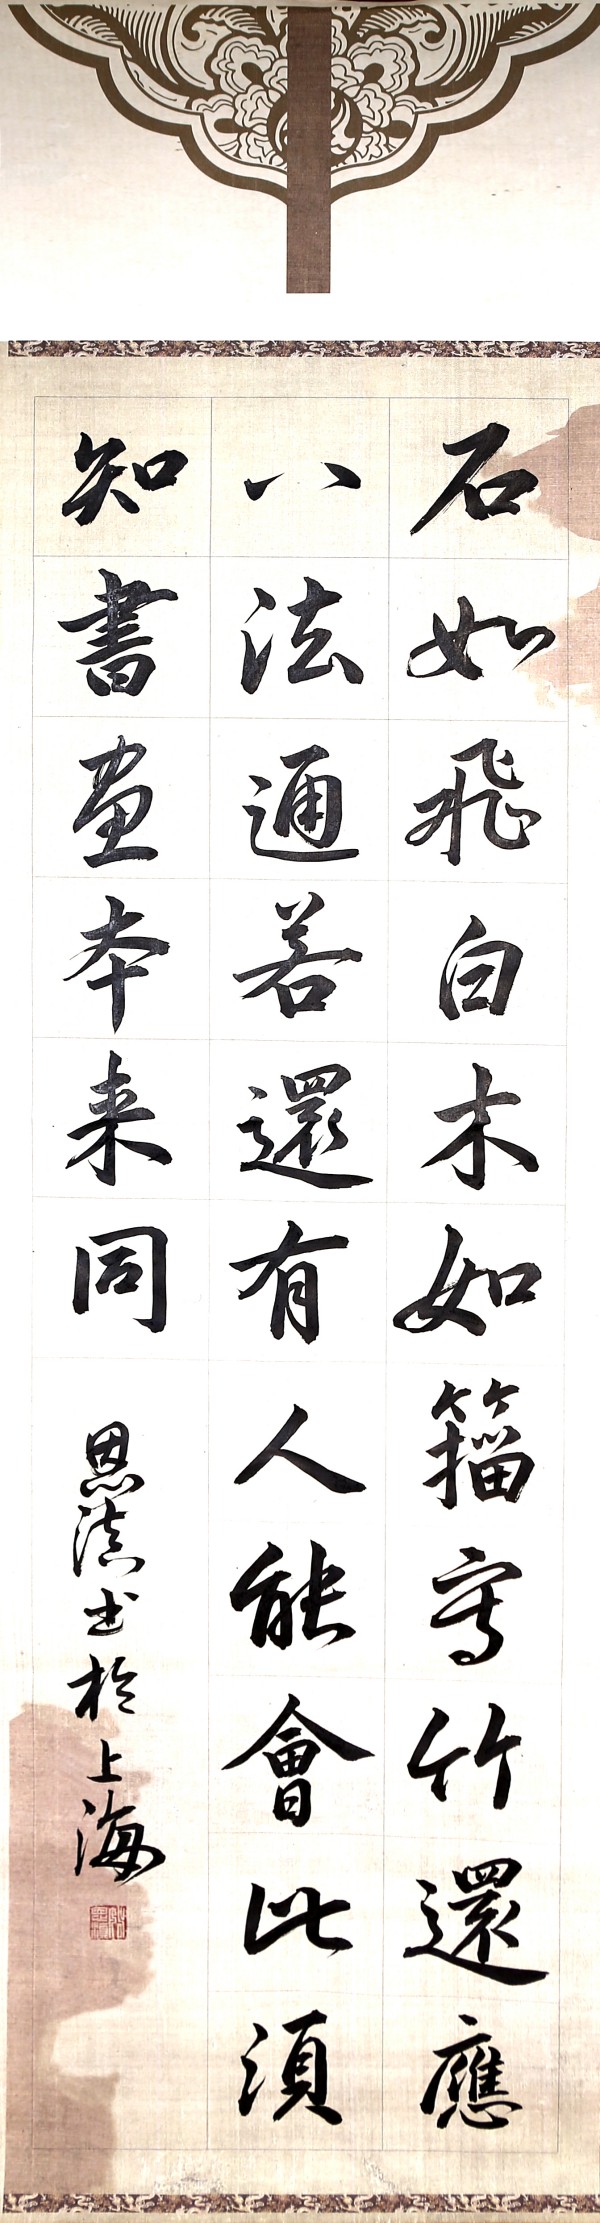 石如飛白木如籀寫竹還應
八法通若還有人能會此須
知書畫本来同
恩滇书於上海